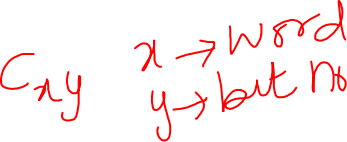 Cxy x → word
y → bit no